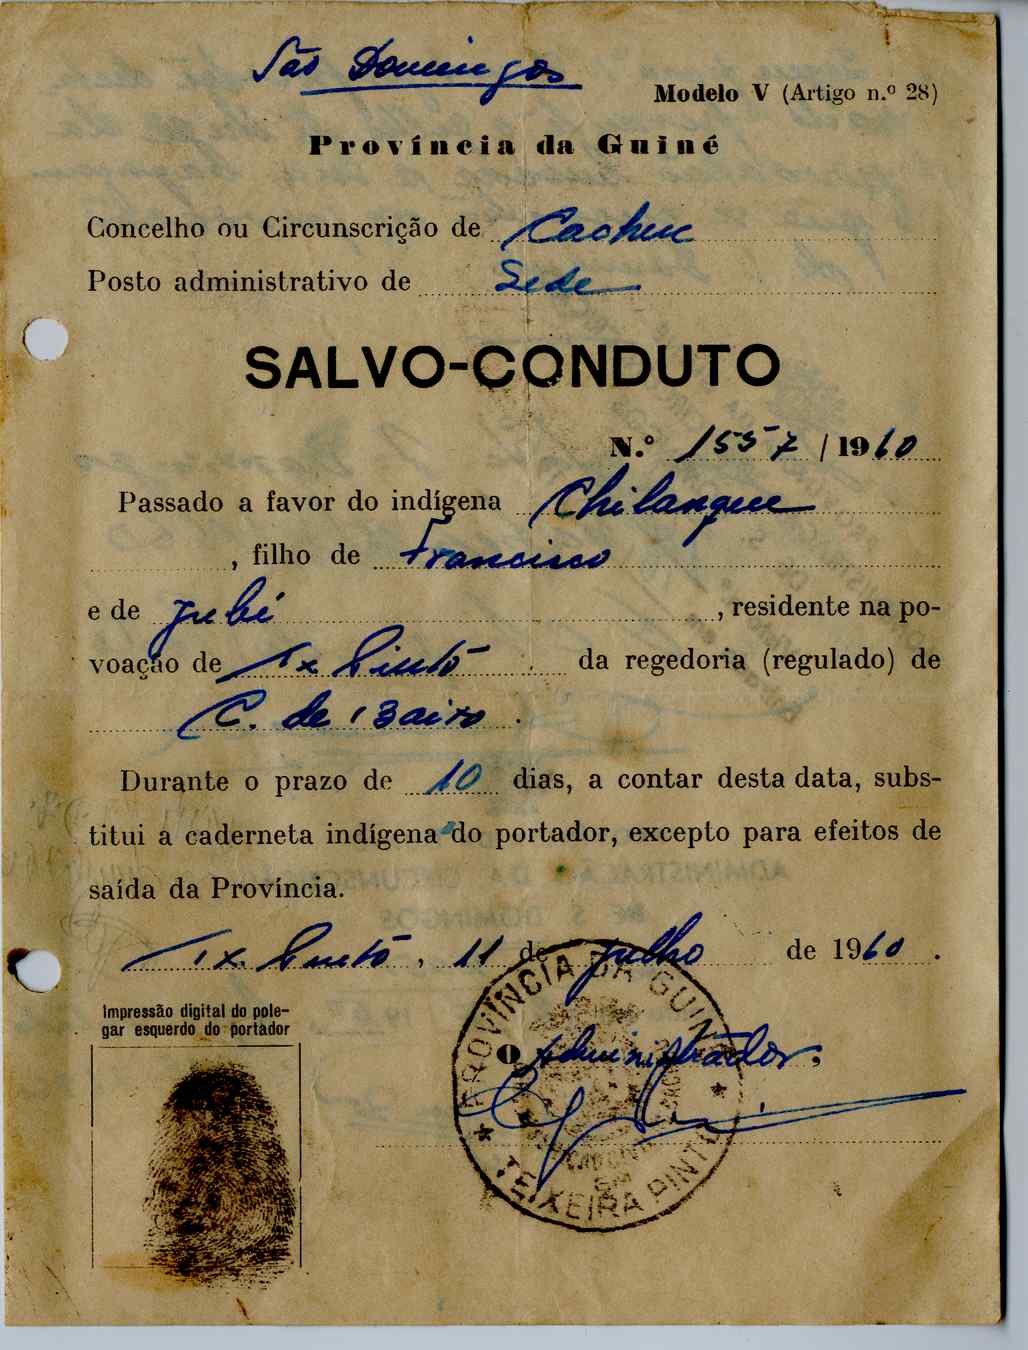 São Domingos
Modelo V (Artigo n.º 28)
Província da Guiné
Concelho ou Circunscrição de Cacheu
Posto administrativo de Sede
SALVO-CONDUTO
N.º 1557 / 1960
Passado a favor do indígena Chilanque
, filho de Francisco
e de Jubi, residente na po-
voação de Tx Pinto da regedoria (regulado) de
C. de Baixo.
Durante o prazo de 10 dias, a contar desta data, subs-
titui a caderneta indígena do portador, excepto para efeitos de
saída da Província.
Tx. Pinto, 11 de Julho de 1960.
Impressão digital do pole-
gar esquerdo do portador
O Administrador,
PROVÍNCIA DA GUINÉ
EM
TEIXEIRA PINTO